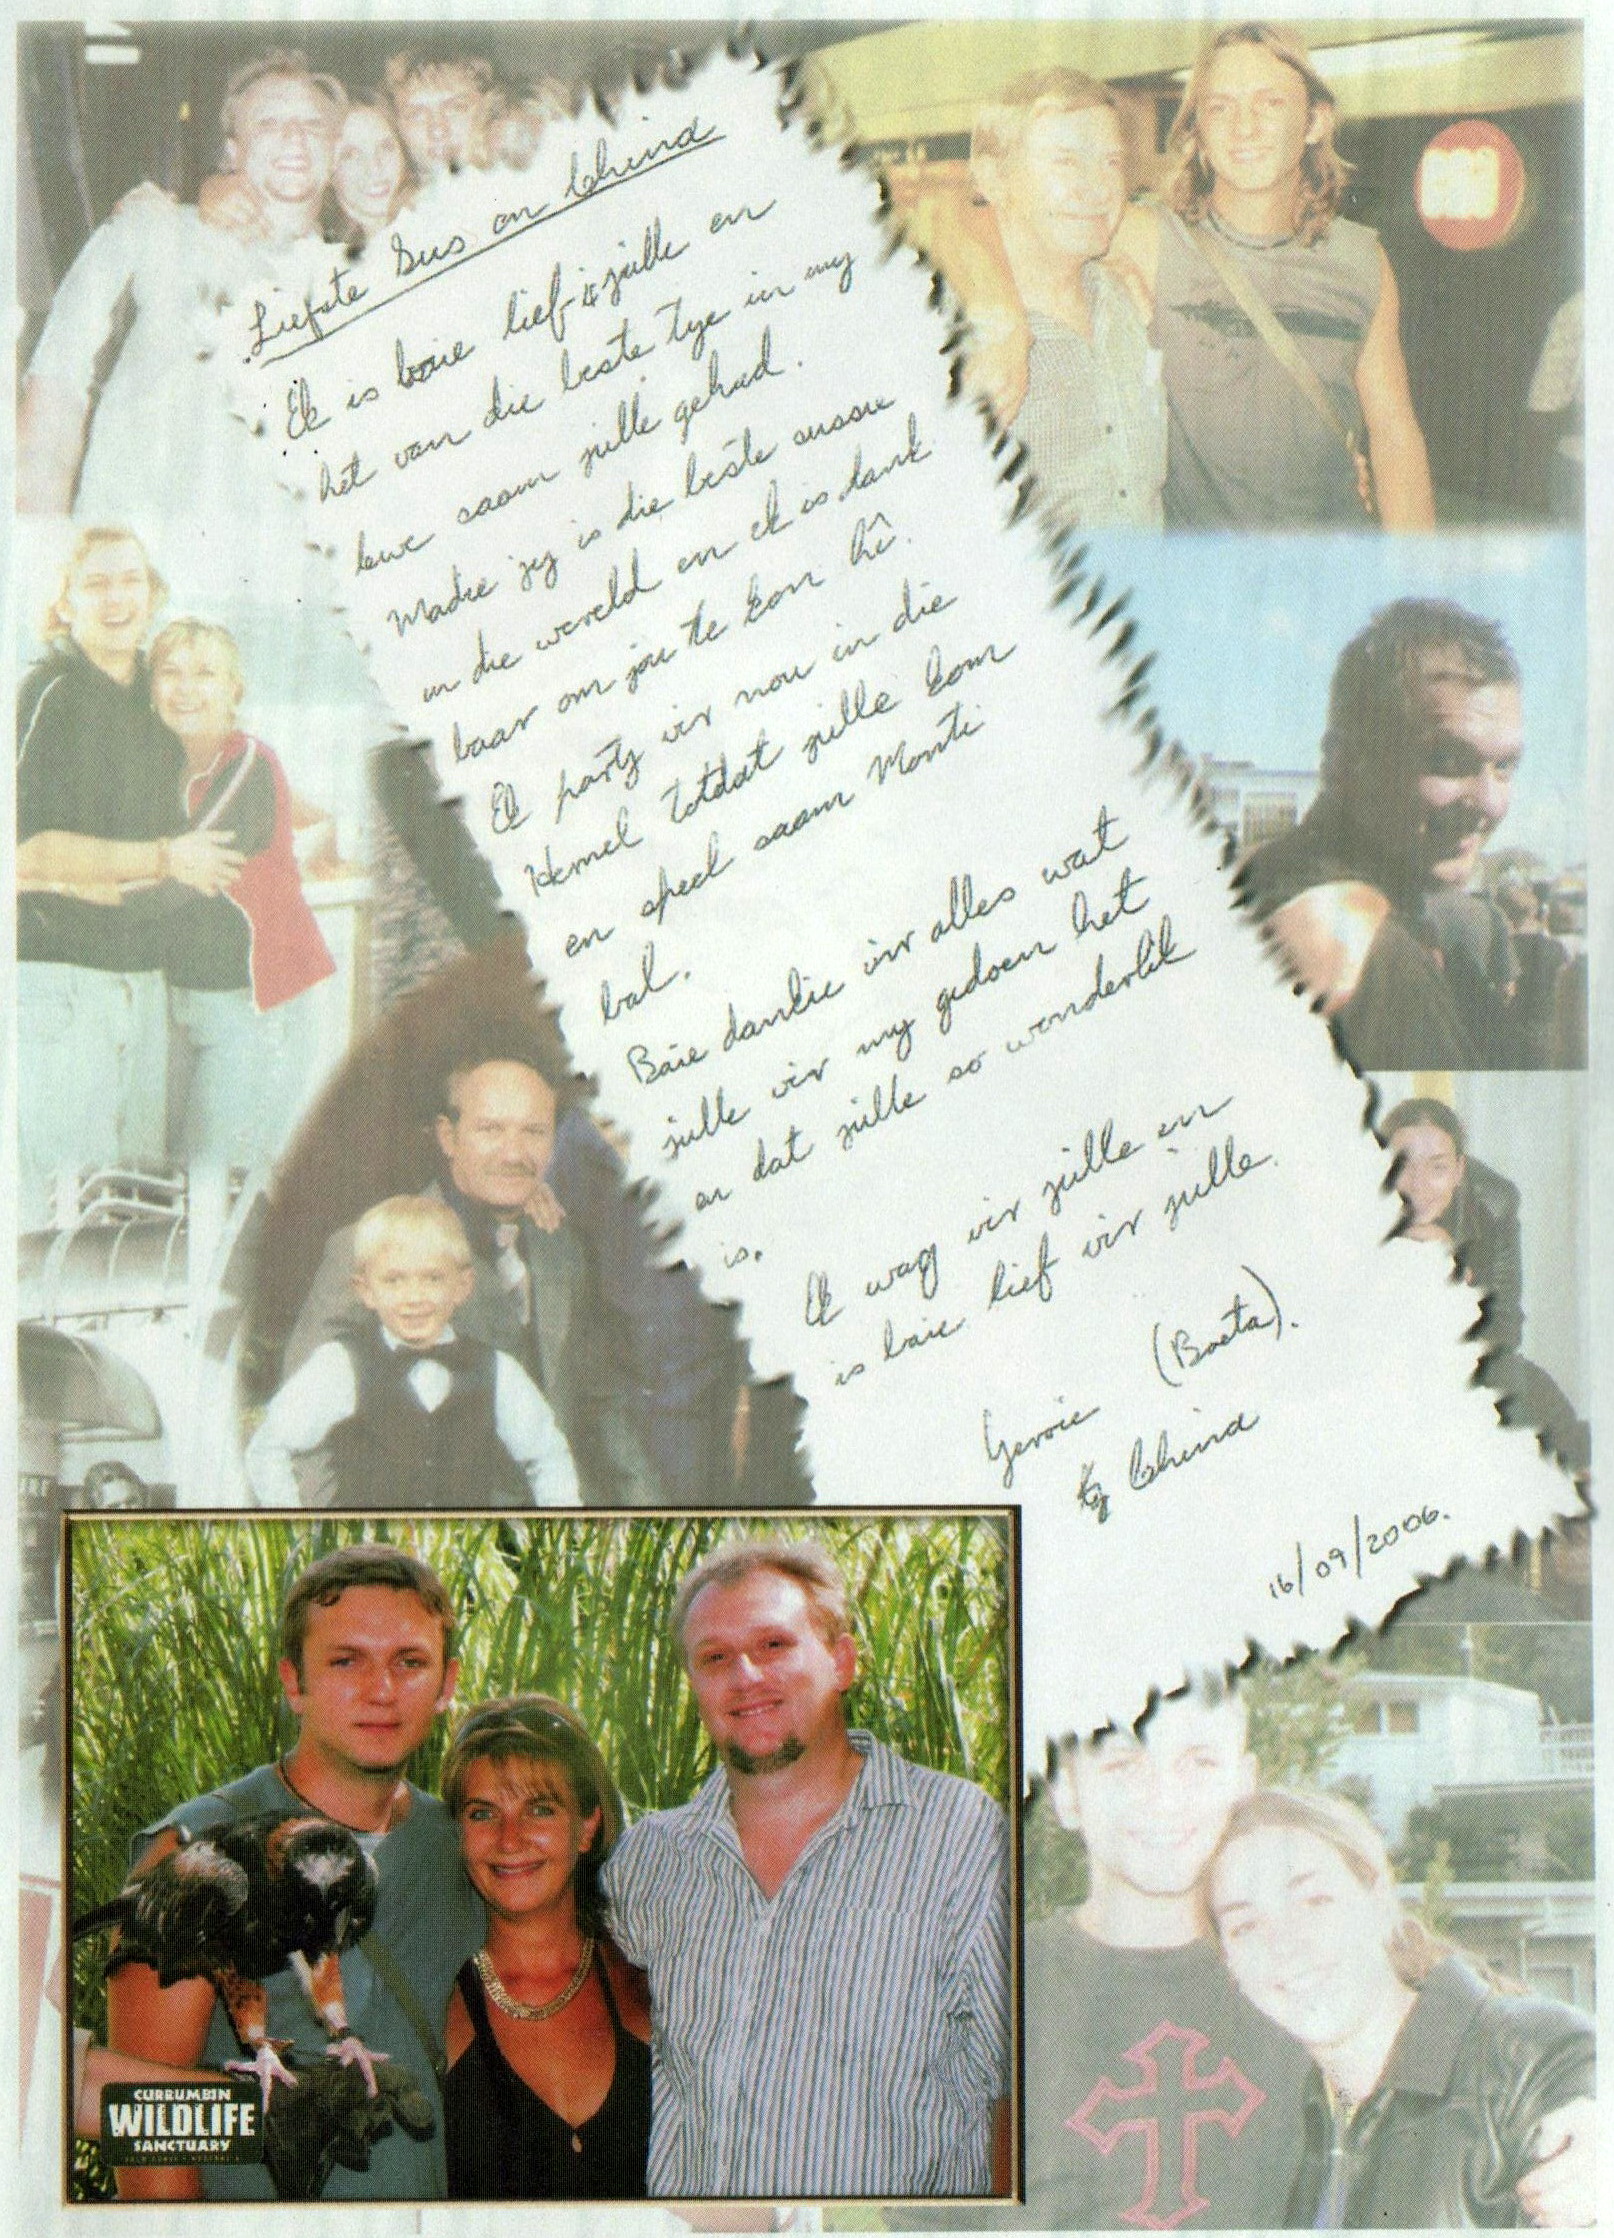 Liefste Sus en Chind
Ek is baie lief jülle en
het van die beste tye in my
lewe saam jülle gehad.
Madie jy is die beste sussie
in die wereld en ek is dank
baar om jou te kon hê.
Ek party vir nou in die
Hemel totdat jülle kom
en speel saam Monti
bal.
Baie dankie vir alles wat
jülle vir my gedoen het
en dat jülle so wonderlik
is.
Ek wag vir jülle en
is baie lief vir julle.
(Boeta).
Gerrie
tz Chind
16/09/2006.
CURRUMBIN
WILDLIFE
SANCTUARY